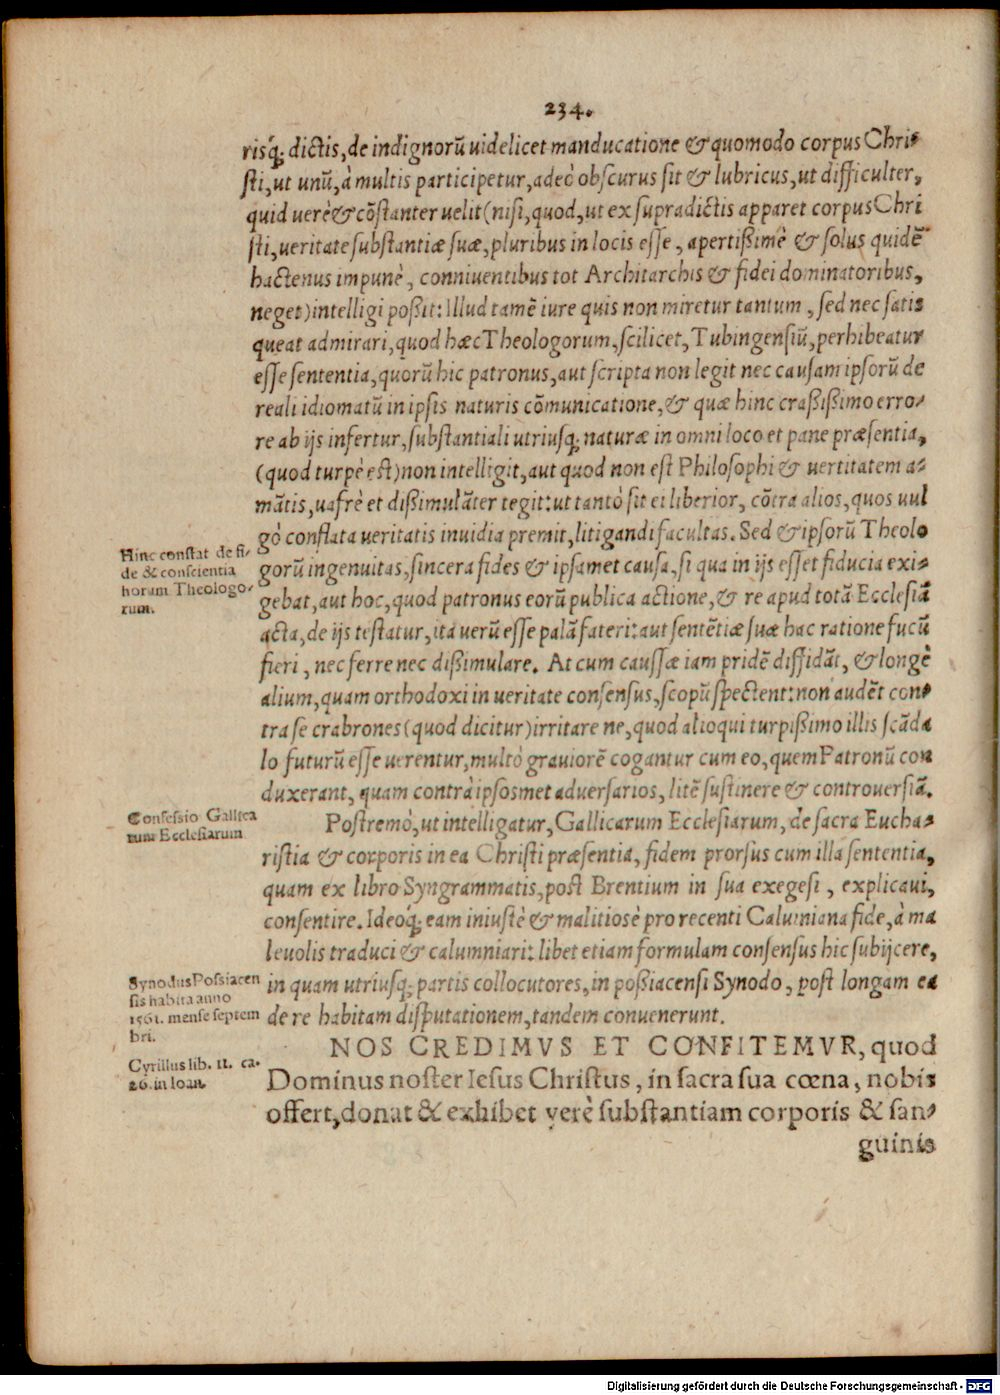 234.
risq́; dictis, de indignorũ uidelicet manducatione & quomodo corpus Chri-
sti, ut unũ, à multis participetur, adeò obscurus sit & lubricus, ut difficulter,
quid uerè & cõstanter uelit (nisi, quod, ut ex supradictis apparet corpus Chri
sti, ueritate substantiæ suæ, pluribus in locis esse, apertißimè & solus quidẽ
hactenus impunè, conniuentibus tot Architarchis & fidei dominatoribus,
neget) intelligi poßit: Illud tamẽ iure quis non miretur tantum, sed nec satis
queat admirari, quod hæc Theologorum, scilicet, Tubingensiũ, perhibeatur
esse sententia, quorũ hic patronus, aut scripta non legit nec causam ipsorũ de
reali idiomatũ in ipsis naturis cõmunicatione, & quæ hinc craßißimo erro-
re ab ijs infertur, substantiali utriusq; naturæ in omni loco et pane præsentia,
(quod turpè est) non intelligit, aut quod non est Philosophi & uertitatem a-
mãtis, uafrè et dißimulãter tegit: ut tantò sit ei liberior, cõtra alios, quos uul
gò conflata ueritatis inuidia premit, litigandi facultas. Sed & ipsorũ Theolo
Hinc constat de fi-
de & conscientia
horum Theologo-
rum.
gorũ ingenuitas, sincera fides & ipsamet causa, si qua in ijs esset fiducia exi-
gebat, aut hoc, quod patronus eorũ publica actione, & re apud totã Ecclesiã
acta, de ijs testatur, ita uerũ esse palã fateri: aut sentẽtiæ suæ hac ratione fucũ
fieri, nec ferre nec dißimulare. At cum caussæ iam pridẽ diffidãt, & longè
alium, quam orthodoxi in ueritate consensus, scopũ spectent: non audẽt con-
tra se crabrones (quod dicitur) irritare ne, quod alioqui turpißimo illis scãda
lo futurũ esse uerentur, multò grauiorẽ cogantur cum eo, quem Patronũ con
duxerant, quam contrà ipsosmet aduersarios, litẽ sustinere & controuersiã.
Confessio Gallica
rum Ecclesiarum
Postremò, ut intelligatur, Gallicarum Ecclesiarum, de sacra Eucha-
ristia & corporis in ea Christi præsentia, fidem prorsus cum illa sententia,
quam ex libro Syngrammatis, post Brentium in sua exegesi, explicaui,
consentire. Ideoq́; eam iniustè & malitiosè pro recenti Caluniana fide, à ma
leuolis traduci & calumniari: libet etiam formulam consensus hic subijcere,
Synodus Possiacen
sis habita anno
1561. mense septem
bri.
in quam utriusq; partis collocutores, in poßiacensi Synodo, post longam ea
de re habitam disputationem, tandem conuenerunt.
Cyrillus lib. 11. ca.
26. in Ioan.
NOS CREDIMVS ET CONFITEMVR, quod
Dominus noster Iesus Christus, in sacra sua cœna, nobis
offert, donat & exhibet verè substantiam corporis & san-
guinis
Digitalisierung gefördert durch die Deutsche Forschungsgemeinschaft - DFG